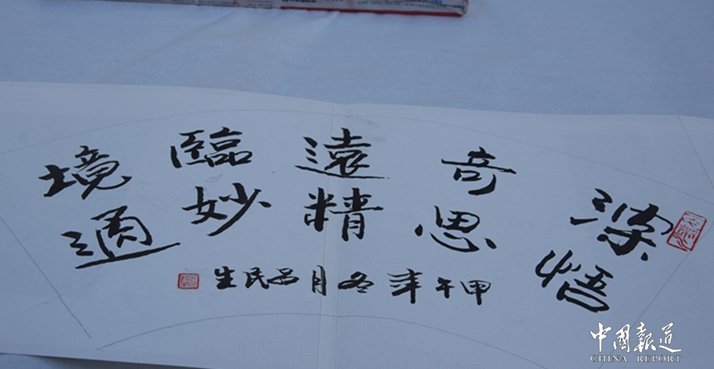 深悟
奇思
遠精
臨妙
境通
甲午年冬月吕民生
中国報道
CHINA REPORT